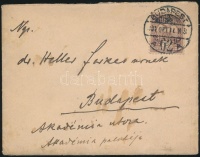 Ngs.
dr. Heller Farkas úrnak
Budapest
Akadémia utca.
Akadémia palotája
BUDAPEST
20
darabanth